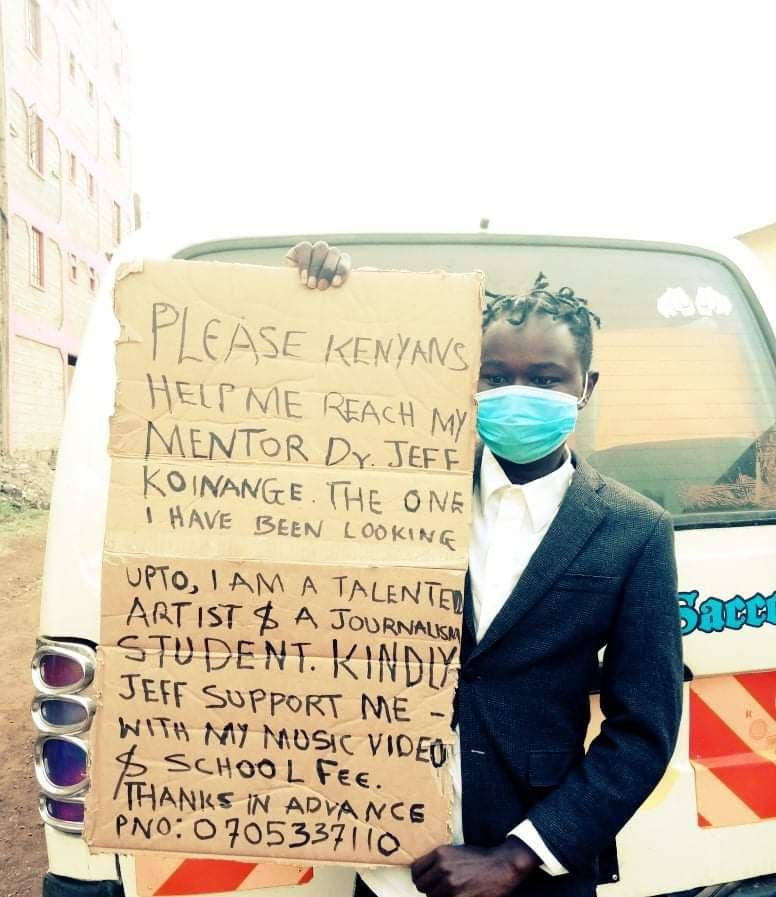 PLEASE KENYANS
HELP ME REACH MY
MENTOR Dr. JEFF
KOINANGE. THE ONE
I HAVE BEEN LOOKING
UPTO, I AM A TALENTED
ARTIST $ A JOURNALISM
STUDENT. KINDLY
JEFF SUPPORT ME -
WITH MY MUSIC VIDEO
$ SCHOOL FEE.
THANKS IN ADVANCE
PNO: 0705337110
Sacco
R